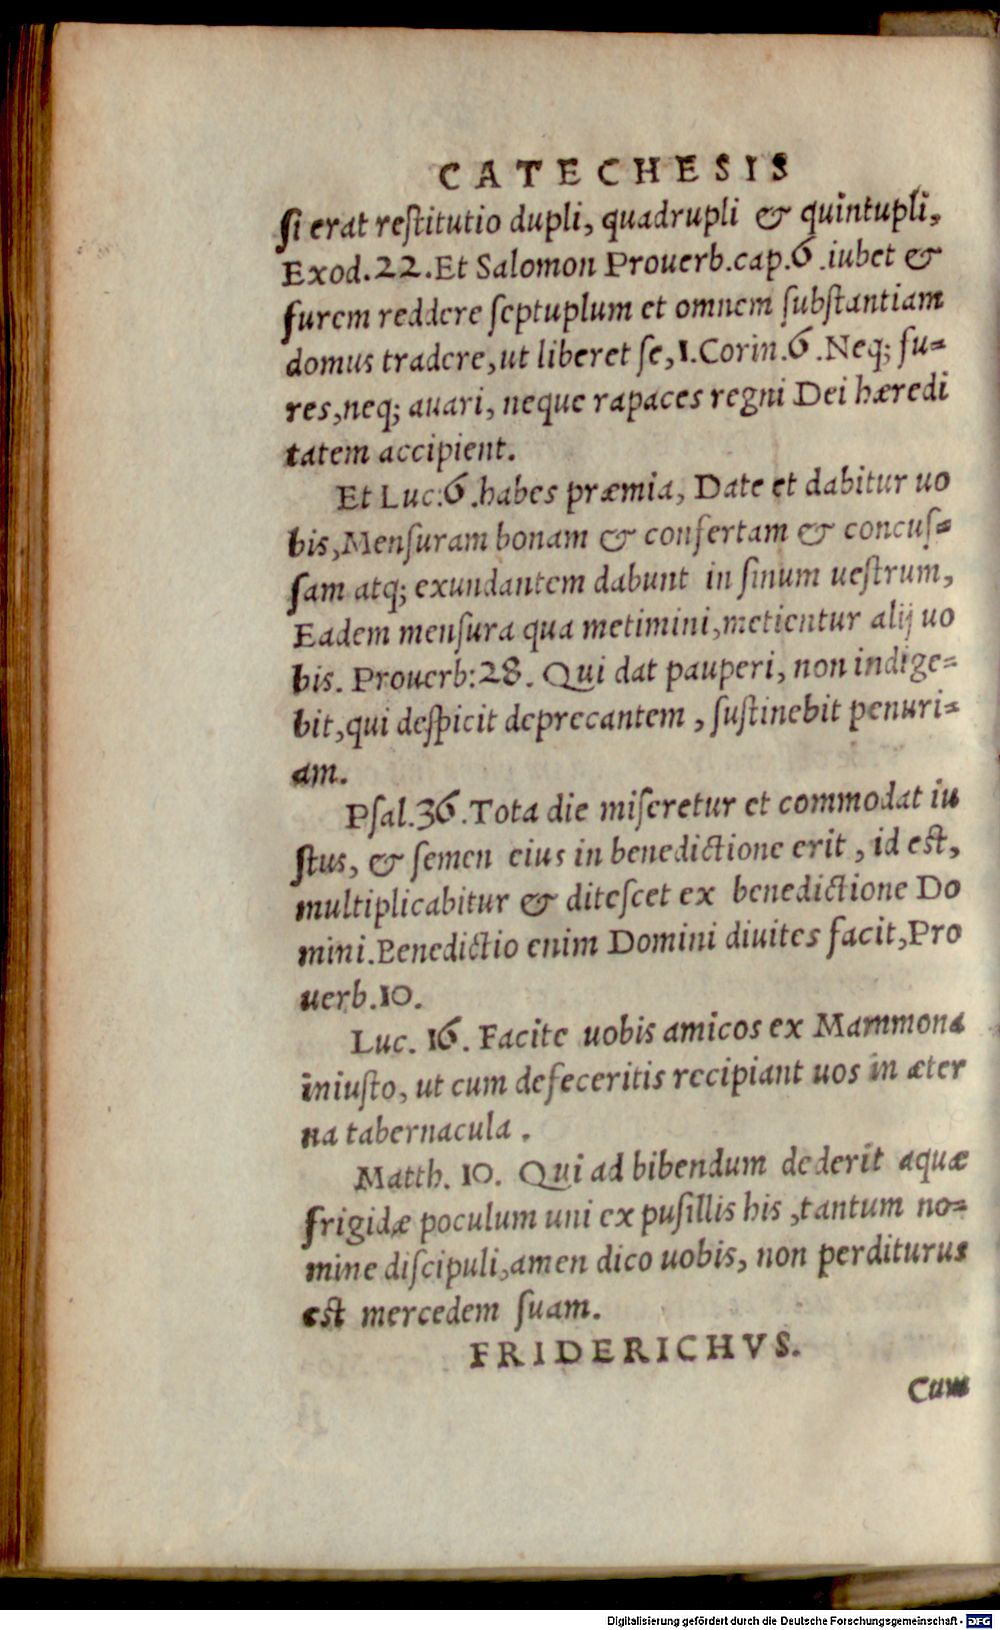 CATECHESIS
ſi erat reſtitutio dupli, quadrupli & quintupli,
Exod.22.Et Salomon Prouerb.cap.6.iubet &
furem reddere ſeptuplum et omnem ſubſtantiam
domus tradere,ut liberet ſe,1.Corin.6.Neq; fu=
res,neq; auari, neque rapaces regni Dei hæredi
tatem accipient.
Et Luc:6.habes præmia, Date et dabitur uo
bis,Menſuram bonam & confertam & concuſ=
ſam atq; exundantem dabunt in ſinum ueſtrum,
Eadem menſura qua metimini,metientur alij uo
bis. Prouerb:28. Qui dat pauperi, non indige=
bit,qui deſpicit deprecantem, ſuſtinebit penuri=
am.
Pſal.36.Tota die miſeretur et commodat iu
ſtus, & ſemen eius in benedictione erit, id eſt,
multiplicabitur & diteſcet ex benedictione Do
mini.Benedictio enim Domini diuites facit,Pro
uerb.10.
Luc. 16. Facite uobis amicos ex Mammona
iniuſto, ut cum defeceritis recipiant uos in æter
na tabernacula.
Matth. 10. Qui ad bibendum dederit aquæ
frigidæ poculum uni ex puſillis his,tantum no=
mine diſcipuli,amen dico uobis, non perditurus
eſt mercedem ſuam.
FRIDERICHVS.
Cum
Digitalisierung gefördert durch die Deutsche Forschungsgemeinschaft - DFG